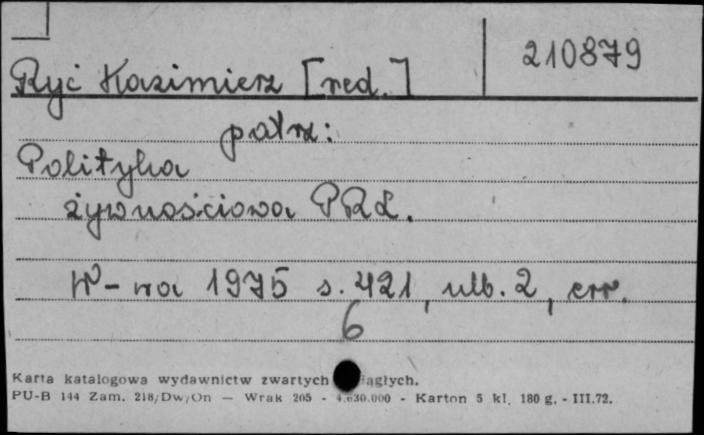 210879
Ryć Kazimierz [red.]
patrz:
Polityka
żywnościowa PRL.
W-wa 1975 s. 421, ulb. 2, err.
6
Karta katalogowa wydawnictw zwartych
PU-B 144 Zam. 218/Dw/On — Wrak 205 - 4.630.000 - Karton 5 kl. 180 g. - III.72.